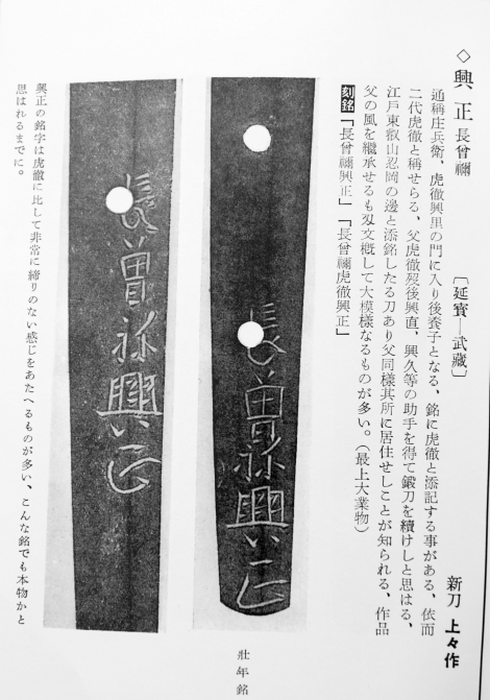 ◇興正 長曾禰 〔延寳—武藏〕 新刀 上々作
通稱庄兵衛、虎徹興里の門に入り後養子となる、銘に虎徹と添記する事がある、依而
二代虎徹と稱せらる、父虎徹歿後興直、興久等の助手を得て鍛刀を續けしと思はる、
江戸東叡山忍岡の邊と添銘したる刀あり父同樣其所に居住せしことが知られる、作品
父の風を繼承せるも刄文概して大模樣なるものが多い。(最上大業物)
刻銘「長曾禰興正」「長曾禰虎徹興正」
長曽祢興正
壯年銘
長曽祢興正
興正の銘字は虎徹に比して非常に締りのない感じをあたへるものが多い、こんな銘でも本物かと
思はれるまでに。